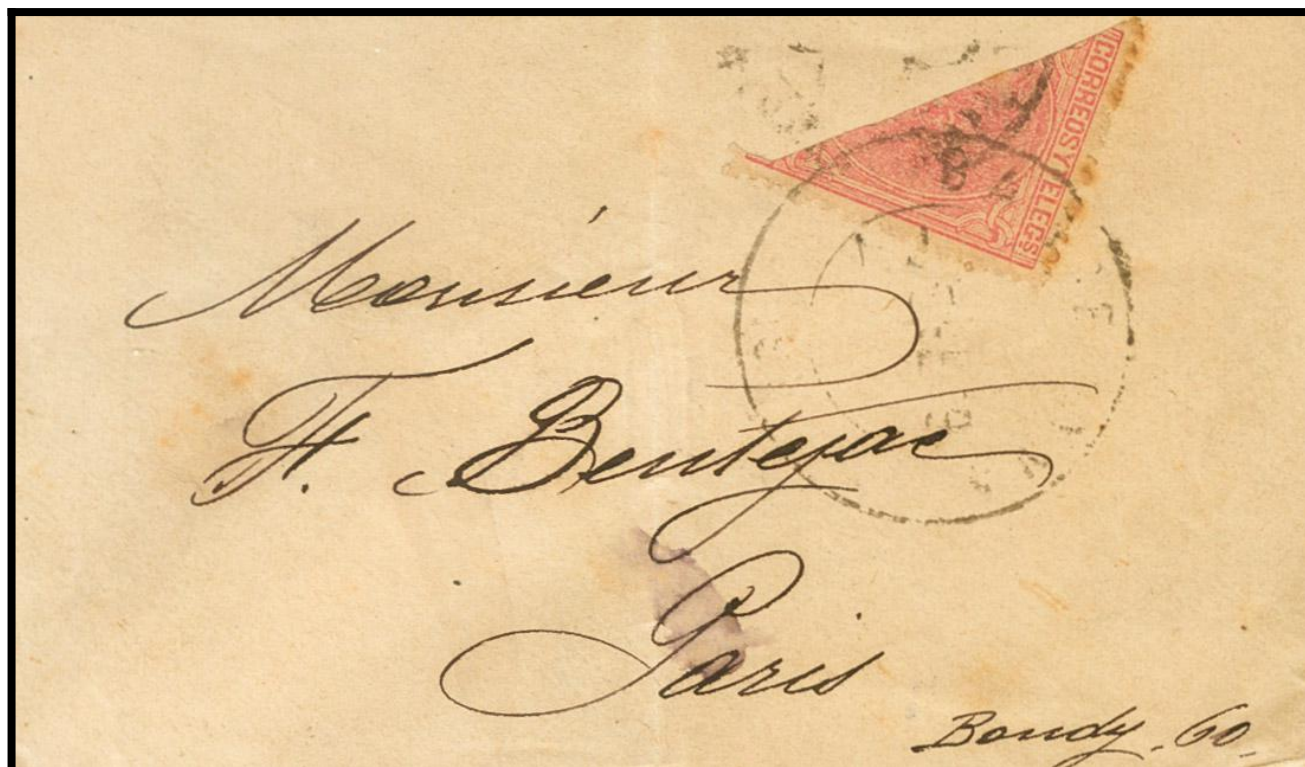 CORREOS Y TELEGS.
Monsieur
F. Bentejac
Paris
Bondy. 60